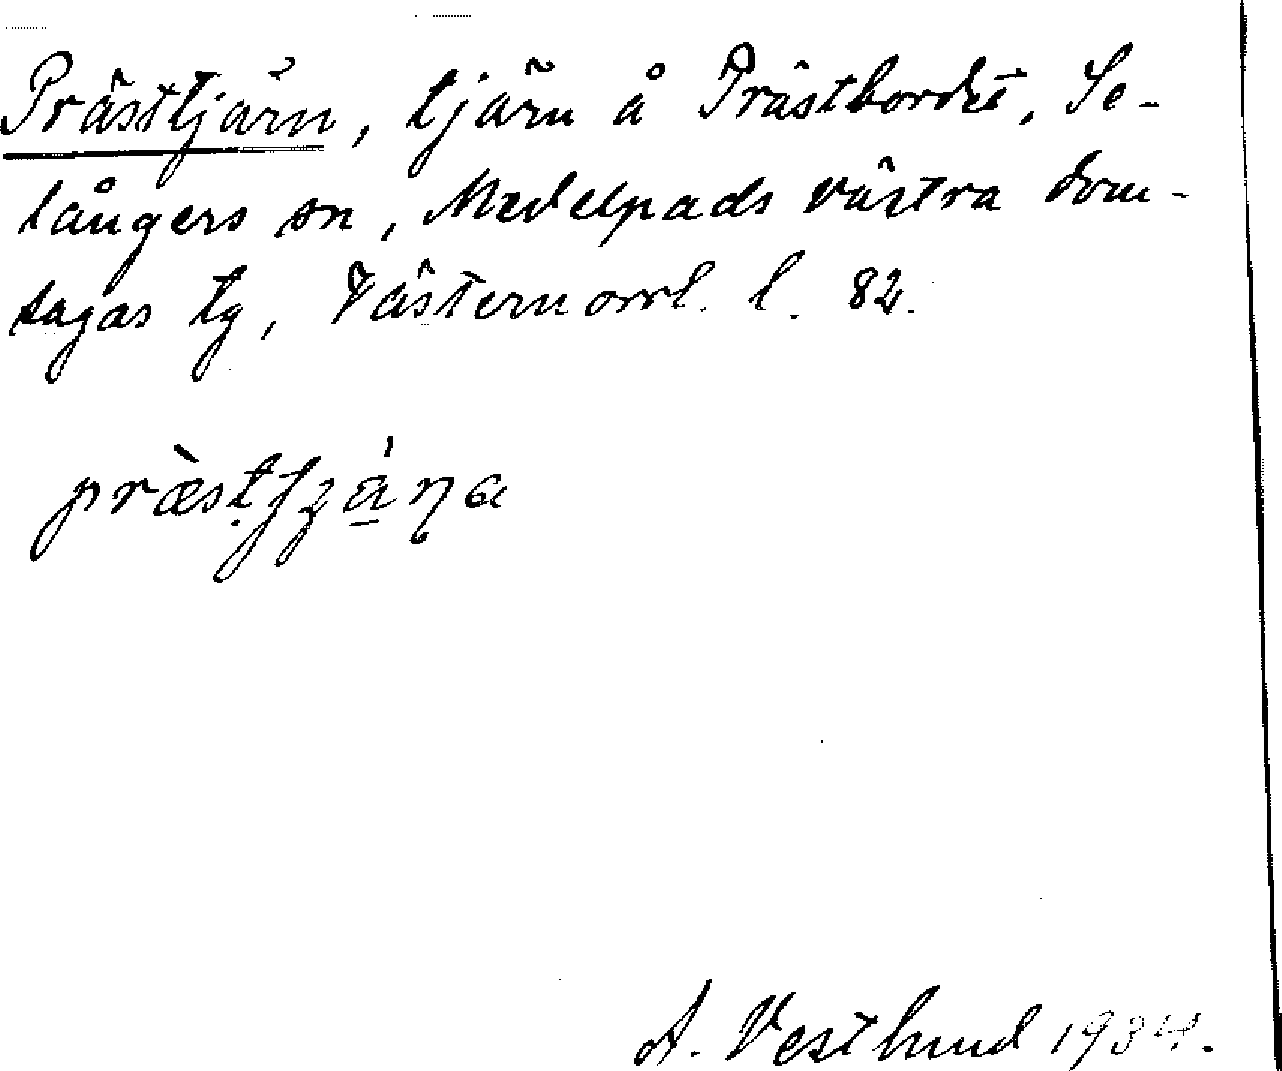 Prästtjärn, tjärn å Prästbordet, Se-
långers sn, Medelpads västra dom-
sagas tg, Västernorrl. l. 82.
A. Vestlund 1934.